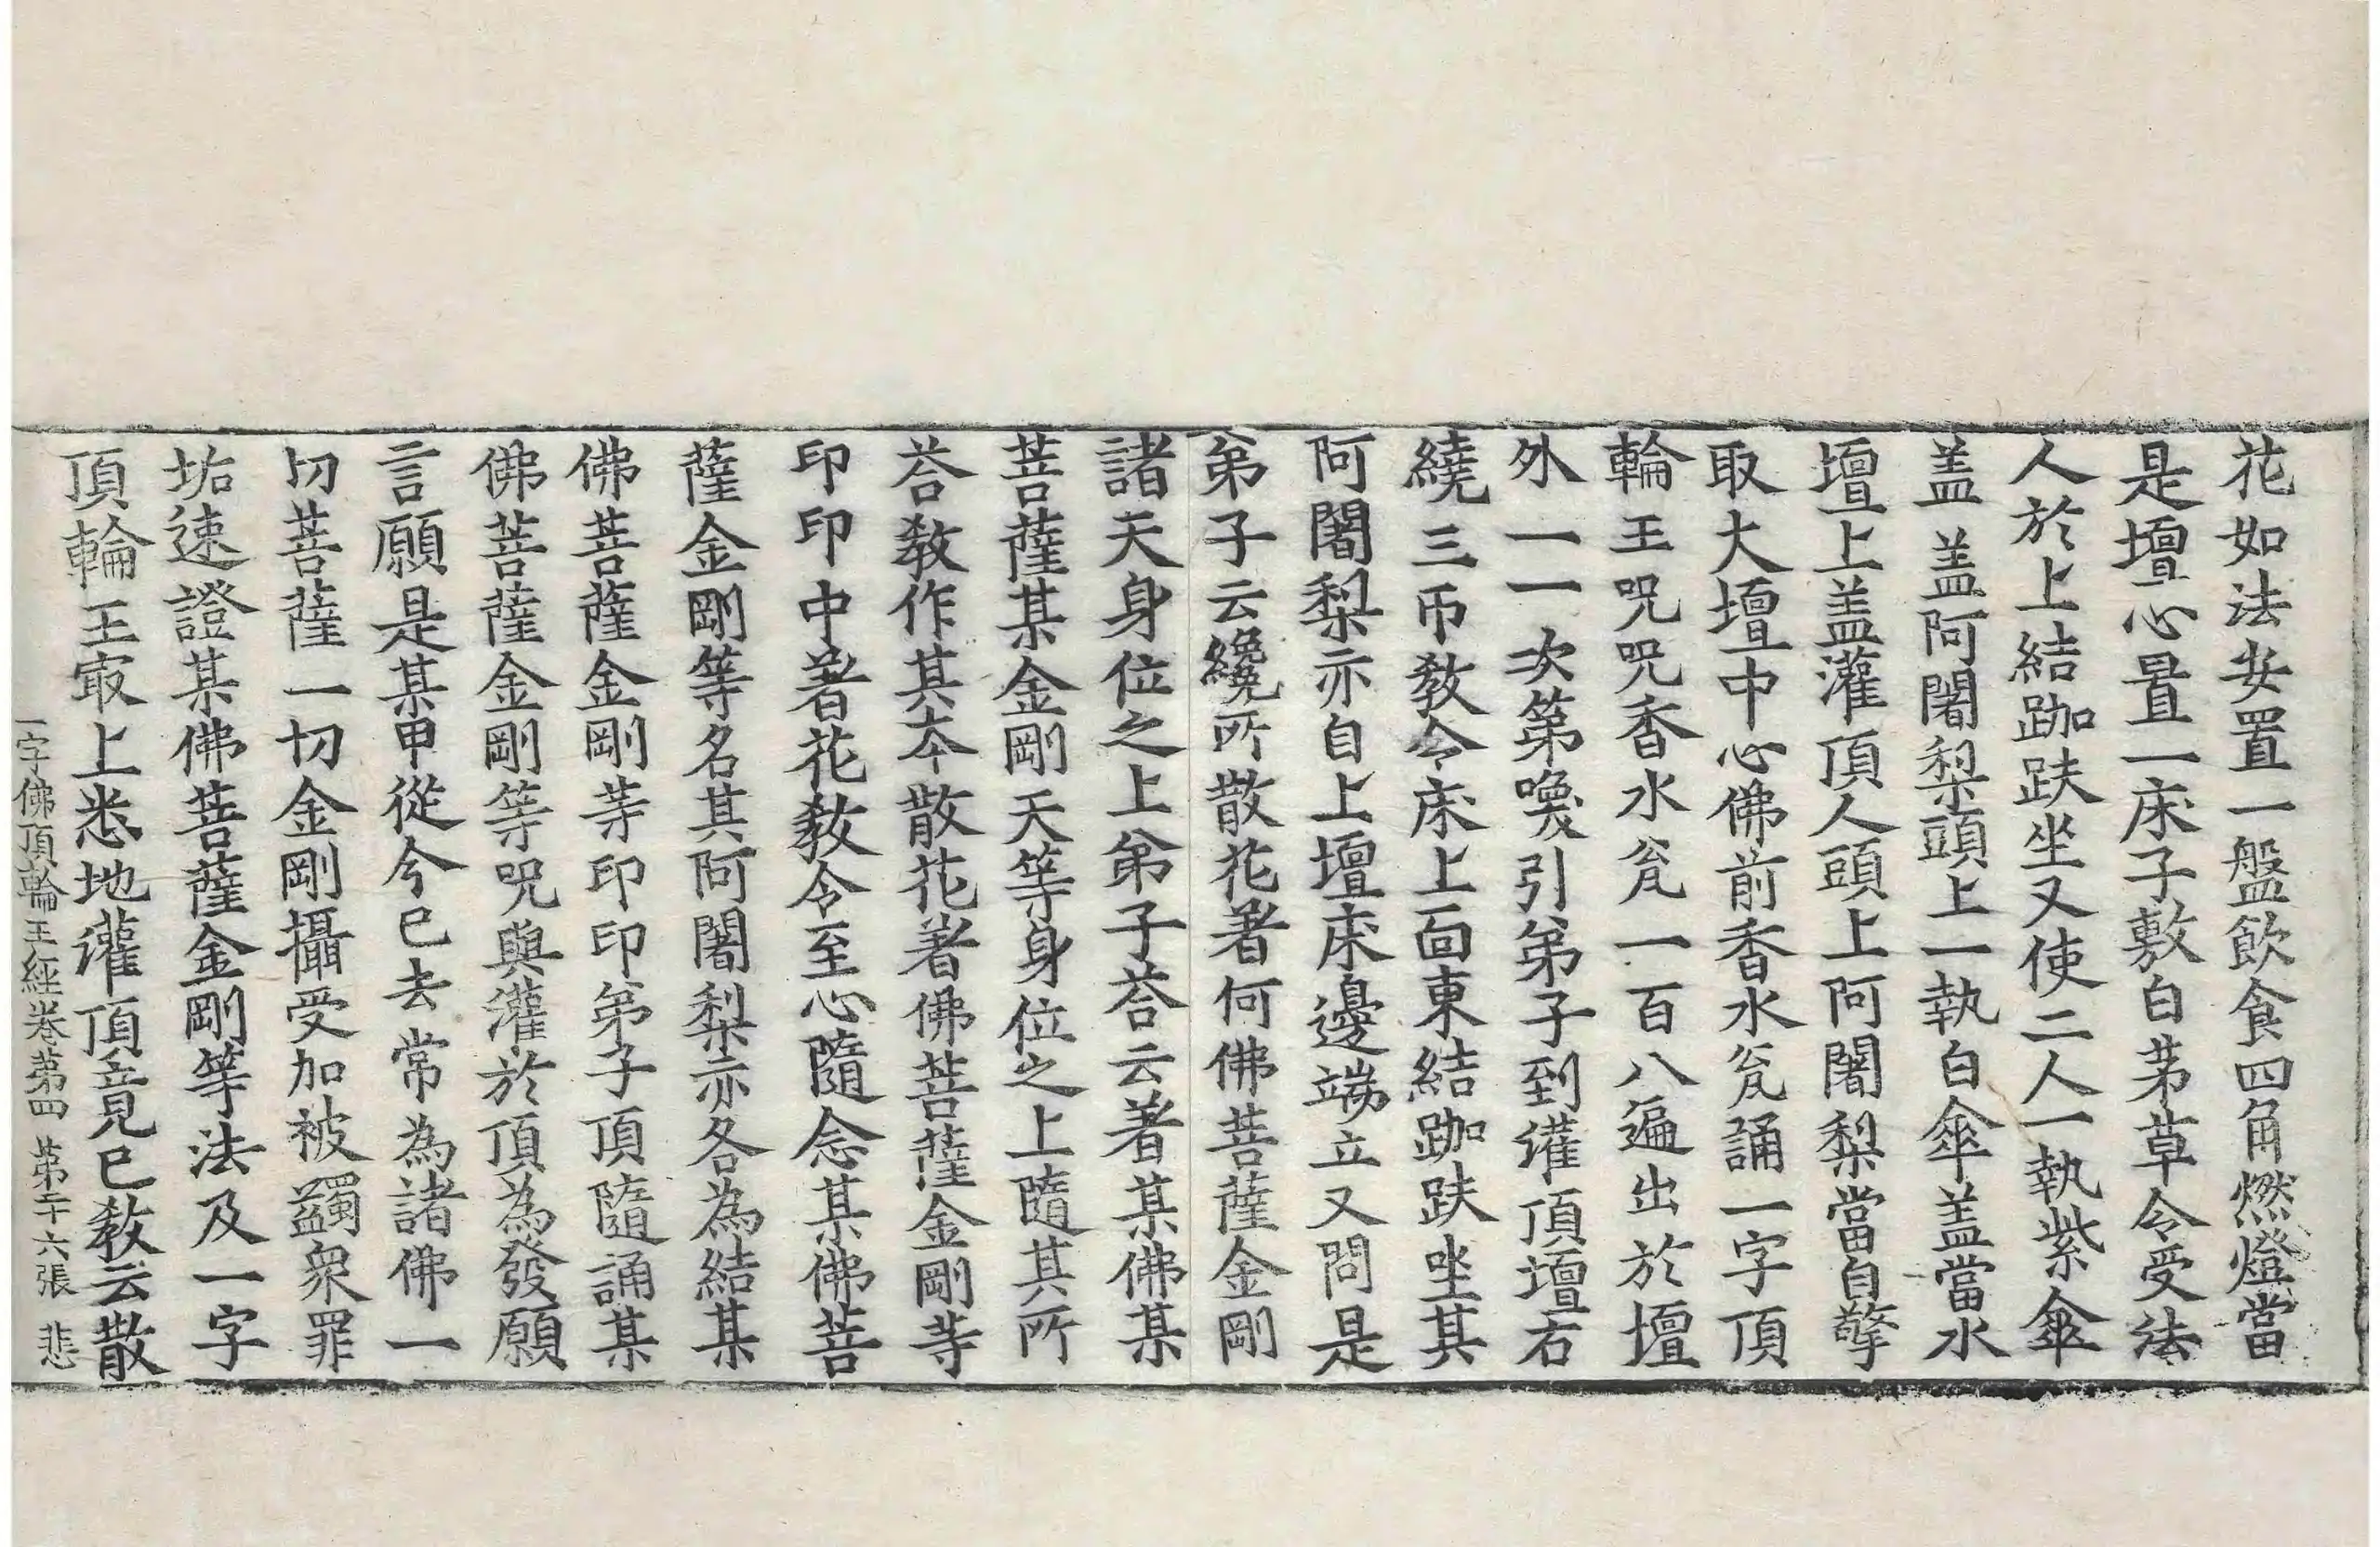 花如法安置一盤飲食四角燃燈當
是壇心置一床子敷白茅草令受法
人於上結跏趺坐又使二人一執紫傘
盖盖阿闍梨頭上一執白傘盖當水
壇上盖灌頂人頭上阿闍梨當自擎
取大壇中心佛前香水瓮誦一字頂
輪王呪呪香水瓮一百八遍出於壇
外一一次第喚引弟子到灌頂壇右
繞三帀教令床上面東結跏趺坐其
阿闍梨亦自上壇床邊端立又問是
弟子云纔所散花著何佛菩薩金剛
諸天身位之上弟子荅云著某佛某
菩薩某金剛天等身位之上隨其所
荅教作其本散花著佛菩薩金剛等
印印中著花教令至心隨念某佛菩
薩金剛等名其阿闍梨亦各為結某
佛菩薩金剛等印印弟子頂隨誦某
佛菩薩金剛等呪與灌於頂為發願
言願是某甲從今已去常為諸佛一
切菩薩一切金剛攝受加被蠲衆罪
垢速證某佛菩薩金剛等法及一字
頂輪王㝡上悉地灌頂竟已教云散
一字佛頂輪王經卷第四 第十六張 悲